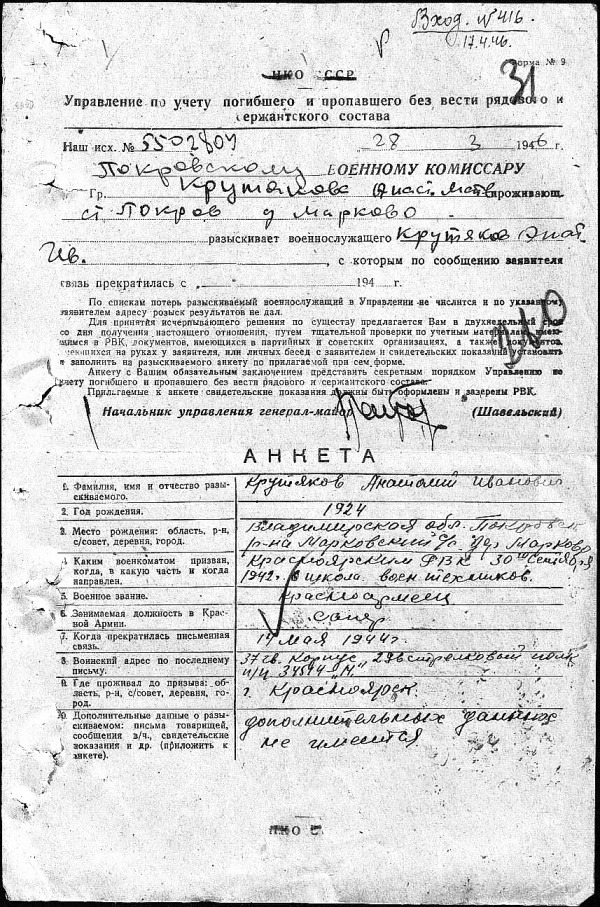 Вход. № 416.
17.4.46.
Форма № 9
НКО СССР
31
Управление по учету погибшего и пропавшего без вести рядового и
сержантского состава
Наш исх. № 5502804 28 3 1946 г.
Покровскому ВОЕННОМУ КОМИССАРУ
Гр. Крутякова Анаст. Матв. проживающ.
ст. Покров д Марково
разыскивает военнослужащего Крутяков Анат.
Ив. , с которым по сообщению заявителя
связь прекратилась с 194 г.
По спискам потерь разыскиваемый военнослужащий в Управлении не числится и по указанному
заявителем адресу розыск результатов не дал.
Для принятия исчерпывающего решения по существу предлагается Вам в двухнедельный срок
со дня получения настоящего отношения, путем тщательной проверки по учетным материалам, имею-
щимся в РВК, документов, имеющихся в партийных и советских организациях, а также документов,
имеющихся на руках у заявителя, или личных бесед с заявителем и свидетельских показаний установить
и заполнить на разыскиваемого анкету по прилагаемой при сем форме.
Анкету с Вашим обязательным заключением представить секретным порядком Управлению по
учету погибшего и пропавшего без вести рядового и сержантского состава.
Прилагаемые к анкете свидетельские показания должны быть оформлены и заверены РВК.
Начальник управления генерал-майор (Шавельский)
АНКЕТА
1. Фамилия, имя и отчество разы-
скиваемого.
Крутяков Анатолий Иванович
2. Год рождения.
1924
3. Место рождения: область, р-н,
с/совет, деревня, город.
Владимирская обл. Покровск
р-на Марковский с/с дер Марково
4. Каким военкоматом призван,
когда, в какую часть и когда
направлен.
Красноярским ГВК 30го сентября
1942г. в школа воен. техников.
5. Военное звание.
Красноармеец
6. Занимаемая должность в Крас-
ной Армии.
Сапер
7. Когда прекратилась письменная
связь.
14 мая 1944 г.
8. Воинский адрес по последнему
письму.
37 гв. корпус 298 стрелковый полк
п/п 34574 "М"
9. Где проживал до призыва: об-
ласть, р-н, с/совет, деревня, го-
род.
г. Красноярск.
10. Дополнительные данные о разы-
скиваемом: письма товарищей,
сообщения в/ч., свидетельские
показания и др. (приложить к
анкете).
дополнительных данных
не имеется
НКО С